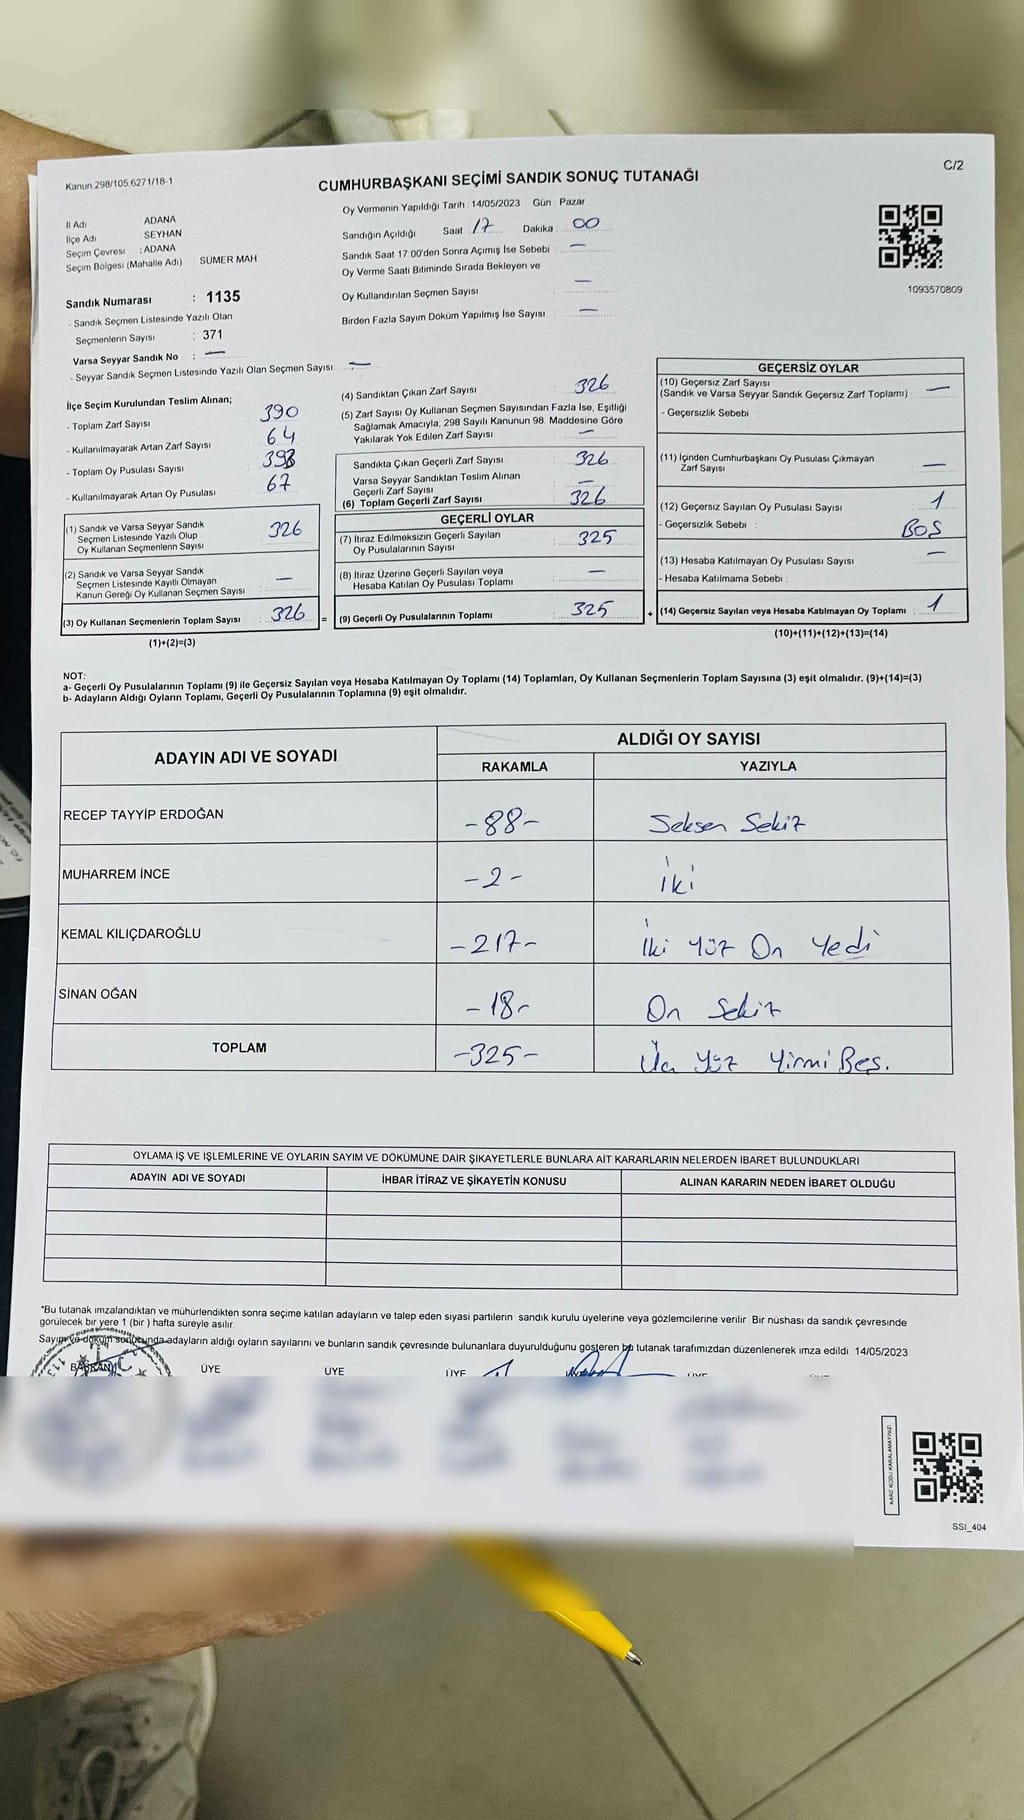 Kanun 298/105,6271/18-1
C/2
CUMHURBAŞKANI SEÇİMİ SANDIK SONUÇ TUTANAĞI
Oy Vermenin Yapıldığı Tarih : 14/05/2023 Gün : Pazar
İl Adı ADANA
İlçe Adı SEYHAN
Seçim Çevresi : ADANA
Seçim Bölgesi (Mahalle Adı) : SUMER MAH
Sandığın Açıldığı Saat 17 Dakika : 00
Sandık Saat 17:00'den Sonra Açımış İse Sebebi : —
Oy Verme Saati Bitiminde Sırada Bekleyen ve
Oy Kullandırılan Seçmen Sayısı —
Birden Fazla Sayım Döküm Yapılmış İse Sayısı : —
1093570809
Sandık Numarası : 1135
- Sandık Seçmen Listesinde Yazılı Olan
Seçmenlerin Sayısı : 371
Varsa Seyyar Sandık No : —
- Seyyar Sandık Seçmen Listesinde Yazılı Olan Seçmen Sayısı: —
İlçe Seçim Kurulundan Teslim Alınan;
- Toplam Zarf Sayısı 390
- Kullanılmayarak Artan Zarf Sayısı 64
- Toplam Oy Pusulası Sayısı
- Kullanılmayarak Artan Oy Pusulası 67
(1) Sandık ve Varsa Seyyar Sandık
Seçmen Listesinde Yazılı Olup
Oy Kullanan Seçmenlerin Sayısı 326
(2) Sandık ve Varsa Seyyar Sandık
Seçmen Listesinde Kayıtlı Olmayan
Kanun Gereği Oy Kullanan Seçmen Sayısı —
(3) Oy Kullanan Seçmenlerin Toplam Sayısı 326 =
(1)+(2)=(3)
(4) Sandıktan Çıkan Zarf Sayısı 326
(5) Zarf Sayısı Oy Kullanan Seçmen Sayısından Fazla İse, Eşitliği
Sağlamak Amacıyla, 298 Sayılı Kanunun 98. Maddesine Göre
Yakılarak Yok Edilen Zarf Sayısı —
Sandıkta Çıkan Geçerli Zarf Sayısı 326
Varsa Seyyar Sandıktan Teslim Alınan
Geçerli Zarf Sayısı —
(6) Toplam Geçerli Zarf Sayısı 326
GEÇERLİ OYLAR
(7) İtiraz Edilmeksizin Geçerli Sayılan
Oy Pusulalarının Sayısı 325
(8) İtiraz Üzerine Geçerli Sayılan veya
Hesaba Katılan Oy Pusulası Toplamı —
(9) Geçerli Oy Pusulalarının Toplamı 325 +
GEÇERSİZ OYLAR
(10) Geçersiz Zarf Sayısı
(Sandık ve Varsa Seyyar Sandık Geçersiz Zarf Toplamı) : —
- Geçersizlik Sebebi :
(11) İçinden Cumhurbaşkanı Oy Pusulası Çıkmayan
Zarf Sayısı —
(12) Geçersiz Sayılan Oy Pusulası Sayısı 1
- Geçersizlik Sebebi : BOŞ
(13) Hesaba Katılmayan Oy Pusulası Sayısı —
- Hesaba Katılmama Sebebi :
(14) Geçersiz Sayılan veya Hesaba Katılmayan Oy Toplamı : 1
(10)+(11)+(12)+(13)=(14)
NOT:
a- Geçerli Oy Pusulalarının Toplamı (9) ile Geçersiz Sayılan veya Hesaba Katılmayan Oy Toplamı (14) Toplamları, Oy Kullanan Seçmenlerin Toplam Sayısına (3) eşit olmalıdır. (9)+(14)=(3)
b- Adayların Aldığı Oyların Toplamı, Geçerli Oy Pusulalarının Toplamına (9) eşit olmalıdır.
ADAYIN ADI VE SOYADI ALDIĞI OY SAYISI
RAKAMLA YAZIYLA
RECEP TAYYİP ERDOĞAN -88- Seksen Sekiz
MUHARREM İNCE -2- İki
KEMAL KILIÇDAROĞLU -217- İki Yüz On Yedi
SİNAN OĞAN -18- On Sekiz
TOPLAM -325- Üç Yüz Yirmi Beş.
OYLAMA İŞ VE İŞLEMLERİNE VE OYLARIN SAYIM VE DÖKÜMÜNE DAİR ŞİKAYETLERLE BUNLARA AİT KARARLARIN NELERDEN İBARET BULUNDUKLARI
ADAYIN ADI VE SOYADI İHBAR İTİRAZ VE ŞİKAYETİN KONUSU ALINAN KARARIN NEDEN İBARET OLDUĞU
*Bu tutanak imzalandıktan ve mühürlendikten sonra seçime katılan adayların ve talep eden siyasi partilerin sandık kurulu üyelerine veya gözlemcilerine verilir Bir nüshası da sandık çevresinde
görülecek bir yere 1 (bir ) hafta süreyle asılır.
Sayım ve döküm sonucunda adayların aldığı oyların sayılarını ve bunların sandık çevresinde bulunanlara duyurulduğunu gösteren bu tutanak tarafımızdan düzenlenerek imza edildi. 14/05/2023
BAŞKAN ÜYE ÜYE ÜYE
KARE KODU KARALAMAYINIZ!
SSI_404